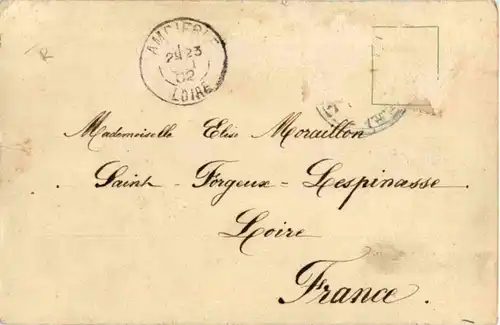 AMBIERLE
23
02
LOIRE
Mademoiselle Elise Moraillon
Saint-Forgeux=Lespinasse
Loire
France.